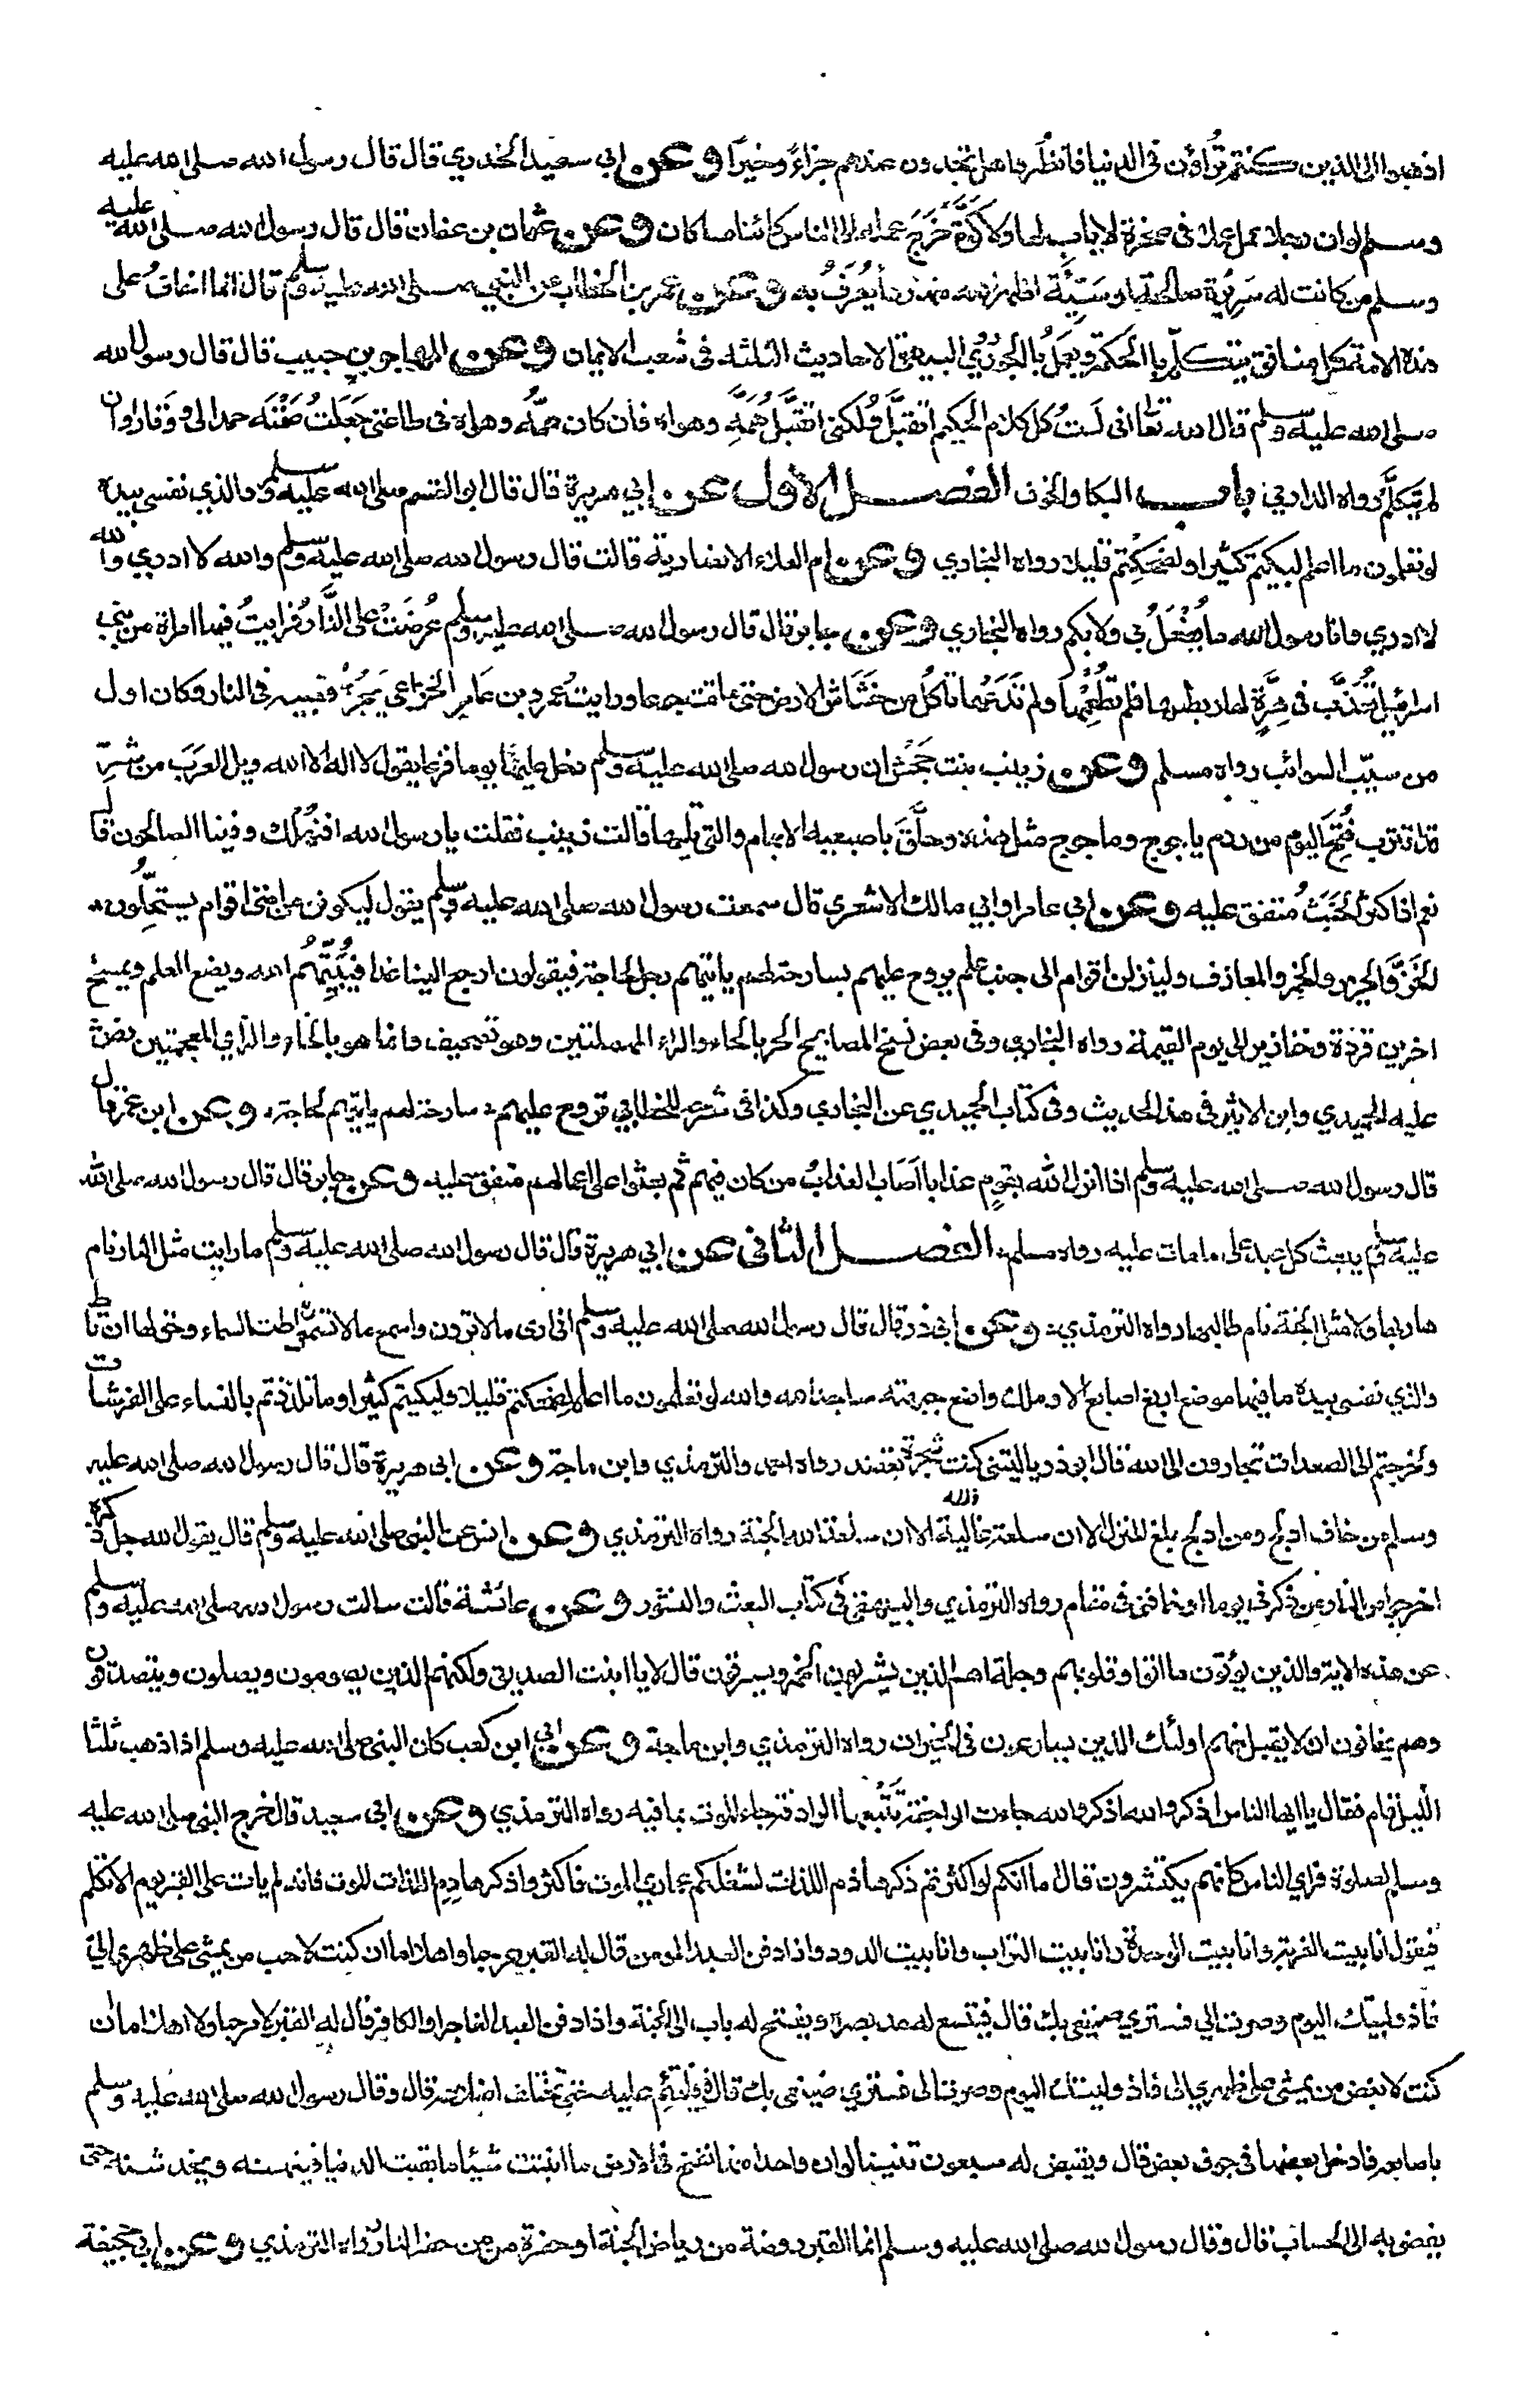 اذهبوا الى الذين كنتم تراؤن فى الدنيا فانظروا هل تجدون عندهم جزاءً وخيرا وعن ابي سعيد الخدري قال قال رسول الله صلى الله عليه
وسلم لوان رجلا عمل عملا فى صخرة لا باب لها ولا كوة خرج عمله الى الناس كائنا ما كان وعن عثمان بن عفان قال قال رسول الله صلى الله عليه
وسلم من كانت له سريرة صالحة او سيئة اظهر الله منها رداً يعرف به وعن عمر بن الخطاب عن النبي صلى الله عليه وسلم قال انما اخاف على
هذه الامة كل منافق يتكلم بالحكمة ويعمل بالجور روى البيهقى الاحاديث الثلثه فى شعب الايمان وعن المهاجر بن حبيب قال قال رسول الله
صلى الله عليه وسلم قال الله تعالى انى لست كل كلام الحكيم اتقبل ولكنى اتقبل همه وهواه فان كان همه وهواه فى طاعتى جعلت صمته حمدا لى ووقارا وان
لم يتكلم رواه الدارمي باب البكا والخوف الفصل الاول عن ابي هريرة قال قال ابو القسم صلى الله عليه وسلم والذي نفسى بيده
لو تعلمون ما اعلم لبكيتم كثيرا ولضحكتم قليلا رواه البخاري وعن ام العلاء الانصارية قالت قال رسول الله صلى الله عليه وسلم والله لا ادري والله
لا ادري وانا رسول الله ما يفعل بي ولا بكم رواه البخاري وعن جابر قال قال رسول الله صلى الله عليه وسلم عرضت على النار فرايت فيها امراة من بنى
اسرائيل تعذب فى هرة لها ربطتها فلم تطعمها ولم تدعها تاكل من خشاش الارض حتى ماتت جوعا ورايت عمرو بن عامر الخزاعي يجر قصبه فى النار وكان اول
من سيب السوائب رواه مسلم وعن زينب بنت جحش ان رسول الله صلى الله عليه وسلم دخل عليها يوما فزعا يقول لا اله الا الله ويل للعرب من شر
قد اقترب فتح اليوم من ردم ياجوج وماجوج مثل هذه وحلق باصبعيه الابهام والتى تليها قالت زينب فقلت يا رسول الله افنهلك وفينا الصالحون قال
نعم اذا كثر الخبث متفق عليه وعن ابي عامر او ابي مالك الاشعري قال سمعت رسول الله صلى الله عليه وسلم يقول ليكونن من امتى اقوام يستحلون
الخز والحرير والخمر والمعازف ولينزلن اقوام الى جنب علم يروح عليهم بسارحة لهم ياتيهم رجل لحاجة فيقولون ارجع الينا غدا فيبيتهم الله ويضع العلم ويمسخ
اخرين قردة وخنازير الى يوم القيمة رواه البخاري وفى بعض نسخ المصابيح الحر بالحاء والراء المهملتين وهو تصحيف وانما هو بالخاء والزاي المعجمتين نص
عليه الحميدي وابن الاثير فى هذا الحديث وفى كتاب الحميدي عن البخاري وكذا فى شرحه للخطابي تروح عليهم سارحة لهم ياتيهم لحاجة وعن ابن عمر قال
قال رسول الله صلى الله عليه وسلم اذا انزل الله بقوم عذابا اصاب العذاب من كان فيهم ثم بعثوا على اعمالهم متفق عليه وعن جابر قال قال رسول الله صلى الله
عليه وسلم يبعث كل عبد على ما مات عليه رواه مسلم الفصل الثانى عن ابي هريرة قال قال رسول الله صلى الله عليه وسلم ما رايت مثل النار نام
هاربها ولا مثل الجنة نام طالبها رواه الترمذي وعن ابي ذر قال قال رسول الله صلى الله عليه وسلم انى ارى ما لا ترون واسمع ما لا تسمعون اطت السماء وحق لها ان تاط
والذي نفسى بيده ما فيها موضع اربع اصابع الا وملك واضع جبهته ساجدا لله والله لو تعلمون ما اعلم لضحكتم قليلا ولبكيتم كثيرا وما تلذذتم بالنساء على الفرشات
ولخرجتم الى الصعدات تجارون الى الله قال ابو ذر ياليتنى كنت شجرة تعضد رواه احمد والترمذي وابن ماجة وعن ابى هريرة قال قال رسول الله صلى الله عليه
وسلم من خاف ادلج ومن ادلج بلغ المنزل الا ان سلعة الله غالية الا ان سلعة الله الجنة رواه الترمذي وعن انس عن النبى صلى الله عليه وسلم قال يقول الله جل ذكره
اخرجوا من النار من ذكرنى يوما او خافنى فى مقام رواه الترمذي والبيهقى فى كتاب البعث والنشور وعن عائشة قالت سالت رسول الله صلى الله عليه وسلم
عن هذه الاية والذين يؤتون ما اتوا وقلوبهم وجلة اهم الذين يشربون الخمر ويسرقون قال لا يا ابنت الصديق ولكنهم الذين يصومون ويصلون ويتصدقون
وهم يخافون ان لا يقبل منهم اولئك الذين يسارعون فى الخيرات رواه الترمذي وابن ماجة وعن ابي ابن كعب كان النبى صلى الله عليه وسلم اذا ذهب ثلثا
الليل قام فقال يا ايها الناس اذكروا الله اذكروا الله جاءت الراجفة تتبعها الرادفة جاء الموت بما فيه رواه الترمذي وعن ابى سعيد قال خرج النبى صلى الله عليه
وسلم لصلوة فراي الناس كانهم يكتشرون قال اما انكم لو اكثرتم ذكر هاذم اللذات لشغلكم عما اري الموت فاكثروا ذكر هادم اللذات الموت فانه لم يات على القبر يوم الا تكلم
فيقول انا بيت الغربة وانا بيت الوحدة وانا بيت التراب وانا بيت الدود واذا دفن العبد المومن قال له القبر مرحبا واهلا اما ان كنت لاحب من يمشى على ظهري الي
فاذ وليتك اليوم وصرت الي فستري صنيعى بك قال فيتسع له مد بصره ويفتح له باب الى الجنة واذا دفن العبد الفاجر او الكافر قال له القبر لا مرحبا ولا اهلا اما ان
كنت لابغض من يمشى على ظهري الى فاذ وليتك اليوم وصرت الى فستري صنيعى بك قال فيلتئم عليه حتى تختلف اضلاعه قال وقال رسول الله صلى الله عليه وسلم
باصابعه فادخل بعضها فى جوف بعض قال ويقيض له سبعون تنينا لو ان واحدا منها نفخ فى الارض ما انبتت شيئا ما بقيت الدنيا فينهسنه ويخدشنه حتى
يفضى به الى الحساب قال وقال رسول الله صلى الله عليه وسلم انما القبر روضة من رياض الجنة او حفرة من حفر النار رواه الترمذي وعن ابي جحيفة